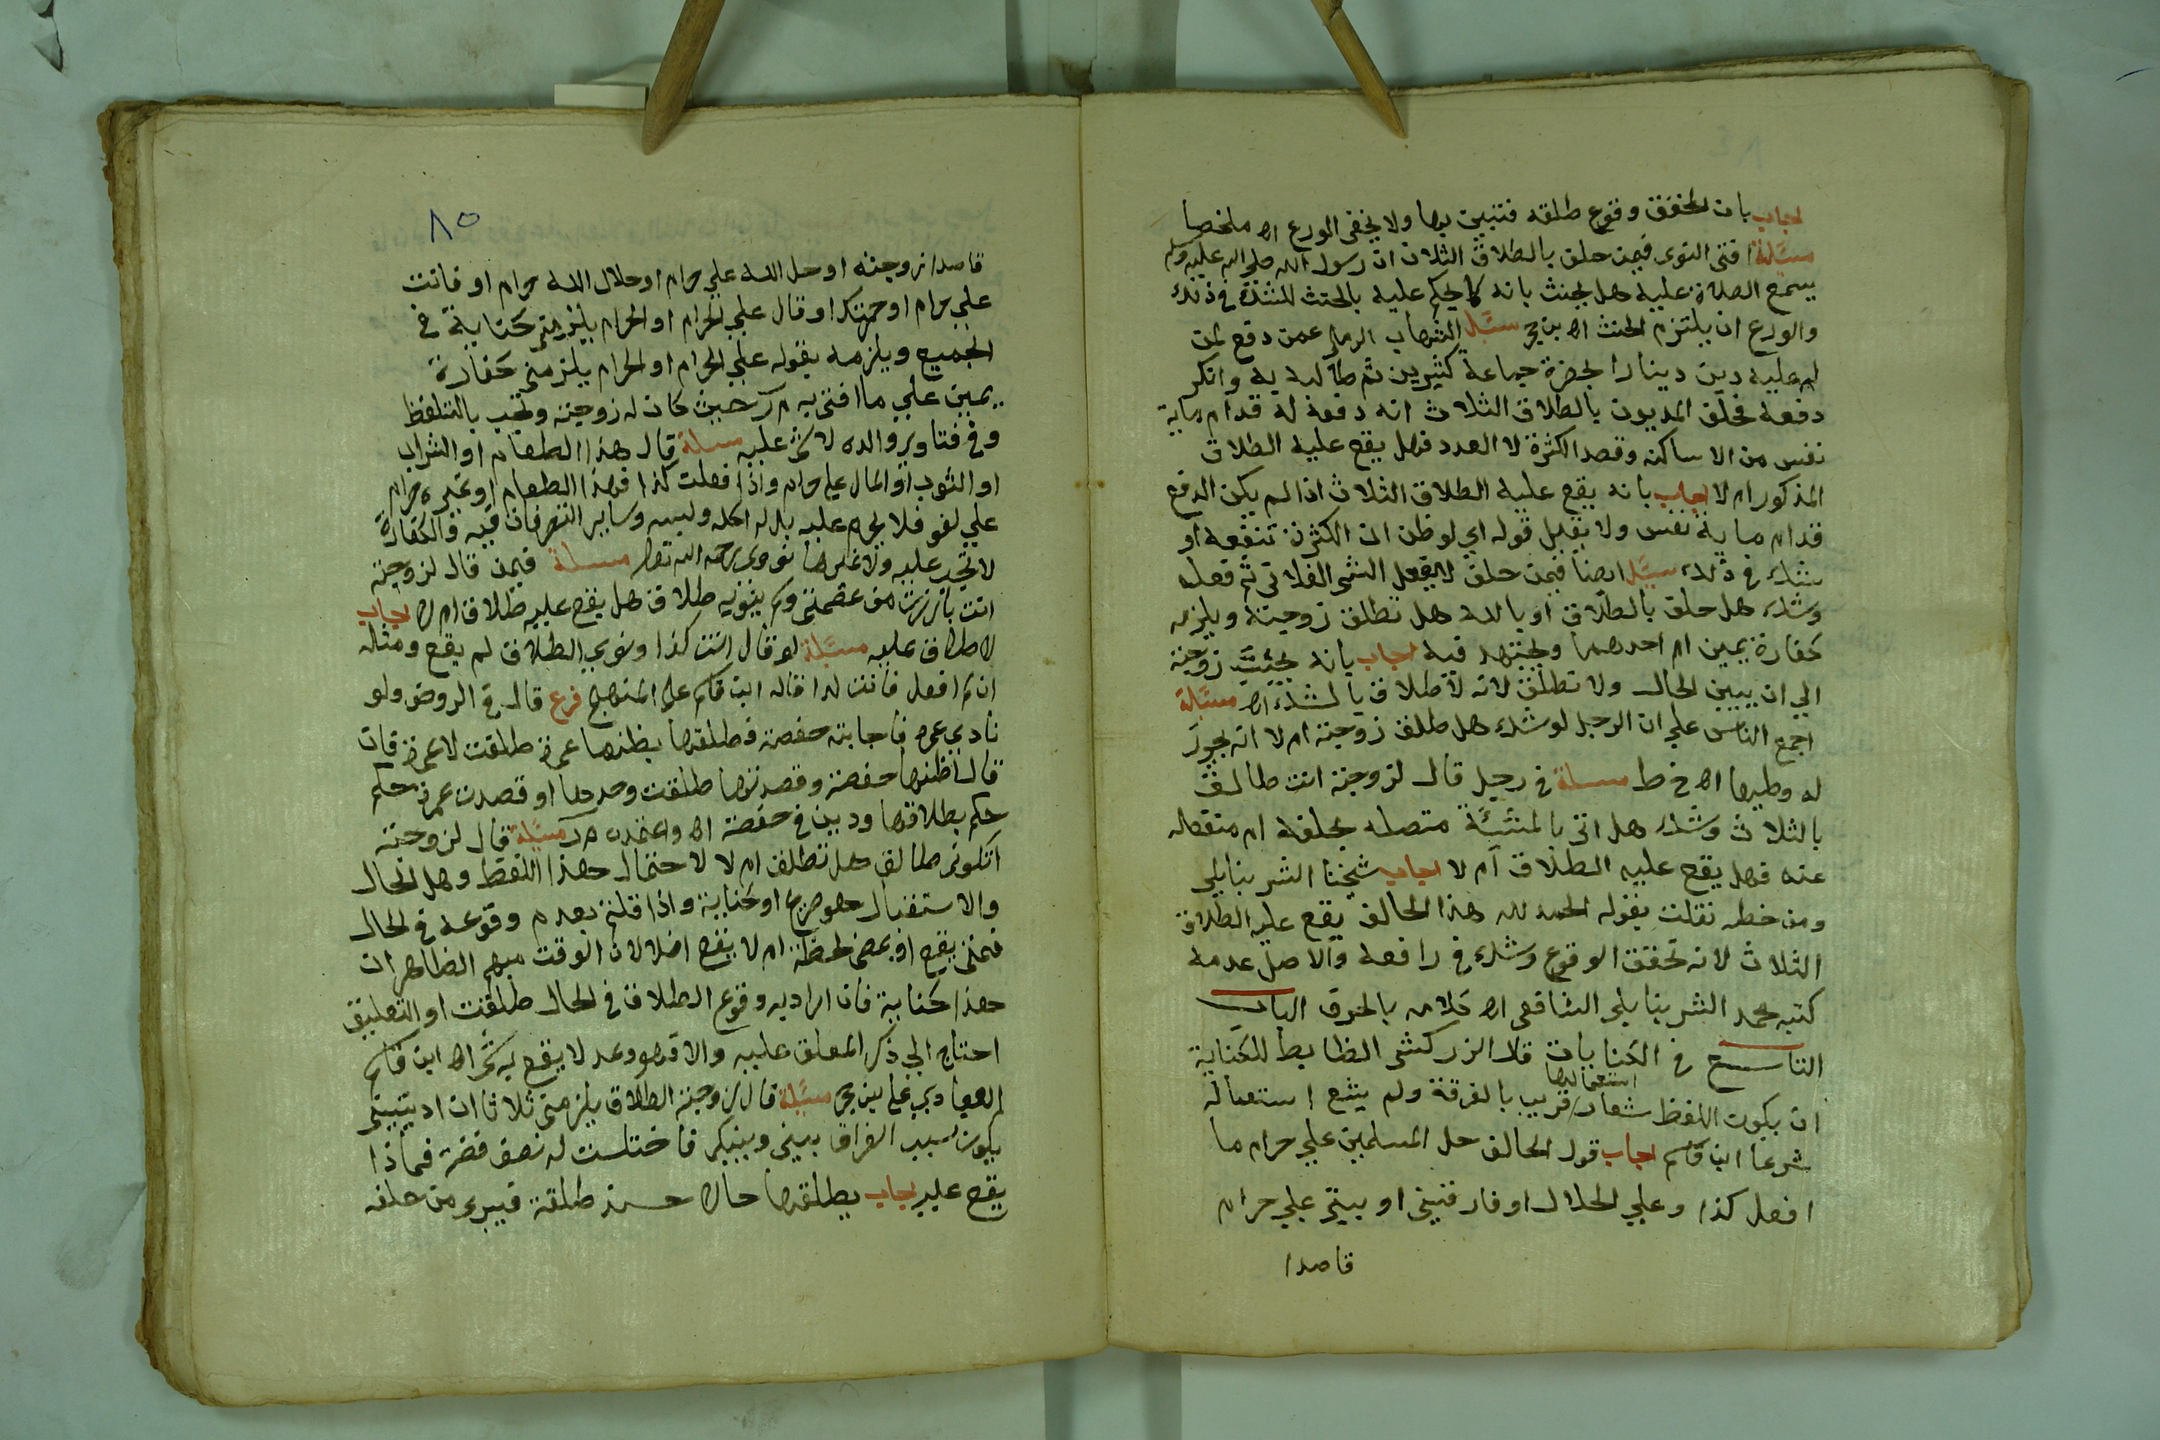 اجاب بان المحقق وقوع طلقه فتبين بها ولا يخفى الورع اه ملخصا
مسئلة افتى النووى فيمن حلف بالطلاق الثلاث ان رسول الله صلى الله عليه وسلم
يسمع الصلاة عليه هل يحنث بانه لا يحكم عليه بالحنث للشك فى ذلك
والورع ان يلتزم الحنث اه بن حجر سئل الشهاب الرملى عمن دفع لمن
له عليه دين دينارا بحضرة جماعة كثيرين ثم طالبه به وانكر
دفعه فحلف المديون بالطلاق الثلاث انه دفعه له قدام ماية
نفس من الاساكنه وقصد الكثرة لا العدد فهل يقع عليه الطلاق
المذكور ام لا اجاب بانه يقع عليه الطلاق الثلاث اذا لم يكن الدفع
قدام ماية نفس ولا يقبل قوله اى لو ظن ان الكثرة تنفعه او
شك فى ذلك سئل ايضا فيمن حلف لا يفعل الشى الفلانى ثم فعله
وشك هل حلف بالطلاق او بالله هل تطلق زوجته ويلزمه
كفارة يمين ام احدهما ويجتهد فيه اجاب بانه يجتنب زوجته
الي ان يبين الحال ولا تطلق لانه لا طلاق بالشك اه مسئلة
اجمع الناس علي ان الرجل لو شك هل طلق زوجته ام لا انه يجوز
له وطيها اه خ ط مسلة فى رجل قال لزوجته انت طالق
بالثلاث وشك هل اتى بالمشيئة متصله بحلفه ام منفصله
عنه فهل يقع عليه الطلاق ام لا اجاب شيخنا الشرنبابلي
ومن خطه نقلت بقوله الحمد لله هذا الحالف يقع عليه الطلاق
الثلاث لانه تحقق الوقوع وشك فى رافعه والاصل عدمه
كتبه محمد الشرنبابلي الشافعى اه كلامه بالحرف الباب
التاسع فى الكنايات قال الزركشى الضابط للكناية
ان يكون اللفظ شعار قريب بالفرقة ولم يشع استعماله
استعمالها
شرعا ابن قاسم اجاب قول الحالف حل المسلمين علي حرام ما
افعل كذا وعلي الحلال او فارقتينى او بيتى علي حرام
قاصدا
٨٥
قاصدا زوجته او حل الله علي حرام او حلال الله حرام او فانت
علي حرام او حرمتك او قال علي الحرام او الحرام يلزمنى كناية فى
الجميع ويلزمه بقوله علي الحرام او الحرام يلزمنى كفارة
يمين علي ما افتى به م ر حيث كان له زوجته وتجب بالتلفظ
وفى فتاوى والده لا شى عليه مسلة قال هذا الطعام او الشراب
او الثوب او المال علي حرام واذا فعلت كذا فهذا الطعام او غيره حرام
علي لغو فلا يحرم عليه بل له اكله ولبسه وساير التصرفات فيه والكفارة
لا تجب عليه ولا غيرها نووى رحمه الله تعا مسلة فيمن قال لزوجته
انت بارزة من عصمتى ولم ينو به طلاق هل يقع عليه طلاق ام لا اجاب
لا طلاق عليه مسئلة لو قال انت كذا ونوي الطلاق لم يقع ومثله
ان لم افعل فانت كذا قاله ابن قاسم على المنهج فرع قال فى الروض ولو
نادي عمرة فاجابته حفصة فطلقها يظنها عمرة طلقت لا عمرة فان
قال اظنها حفصة وقصدتها طلقت وحدها او قصدت عمرة حكم
حكم بطلاقها ودين فى حفصة اه واعتمده م ر مسئلة قال لزوجته
اتكونى طالق هل تطلق ام لا لاحتمال هذا اللفظ وهل الحال
والاستقبال هو صريح او كناية واذا قلتم بعدم وقوعه فى الحال
فمتى يقع او بمضى لحظة ام لا يقع اصلا لان الوقت مبهم الظاهر ان
هذا كناية فان اراد به وقوع الطلاق فى الحال طلقت او التعليق
احتاج الي ذكر المعلق عليه والا فهو وعد لا يقع به شى اه ابن قاسم
العبادي على بن حجر مسئلة قال لزوجته الطلاق يلزمنى ثلاثا ان اديتينى
يكون سبب الفراق بينى وبينك فاختلست له نصف فضة فماذا
يقع عليه اجاب يطلقها حالا طلقة فيبرء من حلفه